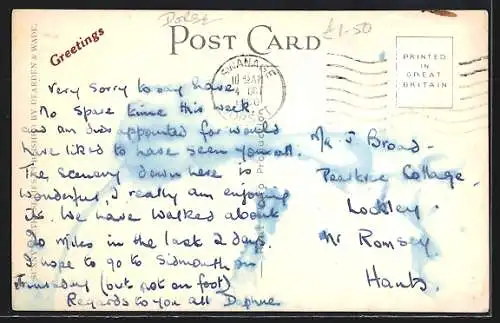 Dorset
£1-50
Greetings
POST CARD
PRINTED
IN
GREAT
BRITAIN
SWANAGE
10 AM
4
DORSET
PUBLISHED BY DEARDEN & WADE
Very sorry to say have
no spare time this week.
am disappointed for would
have liked to have seen you all.
The scenery down here is
wonderful, I really am enjoying
it. We have walked about
20 miles in the last 2 days.
I hope to go to Sidmouth on
Thursday (but not on foot)
Regards to you all Daphne
J Broad
Peartree Cottage
Lockley
Nr Romsey
Hants.